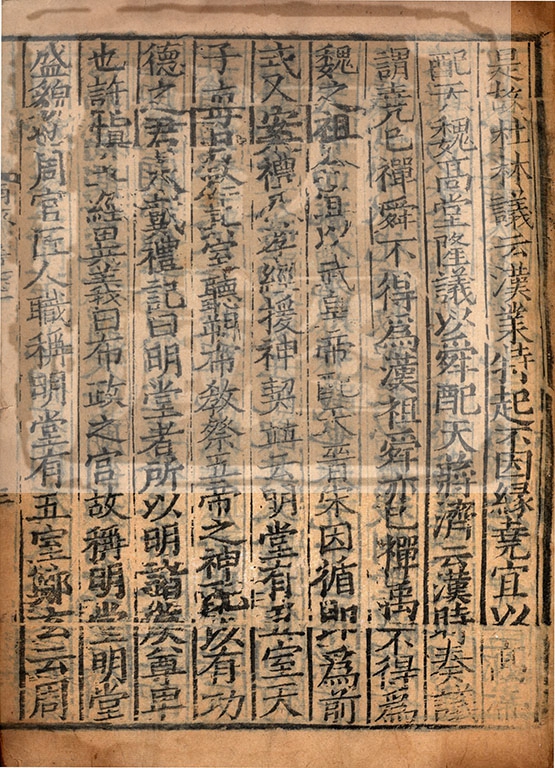 異故杜林議云漢業特起不因緣堯宜以高帝
配天魏高堂隆議以舜配天蔣濟云漢時奏議
謂堯已禪舜不得為漢祖舜亦已禪禹不得為
魏之祖今宜以武皇帝配天晉宋因循即為前
式又案禮及孝經援神契並云明堂有五室天
子每月於其室聽朔布教祭五帝之神配以有功
德之君大戴禮記曰明堂者所以明諸侯尊卑
也許慎五經異義曰布政之官故稱明堂明堂
盛貌也周官匠人職稱明堂有五室鄭玄云周